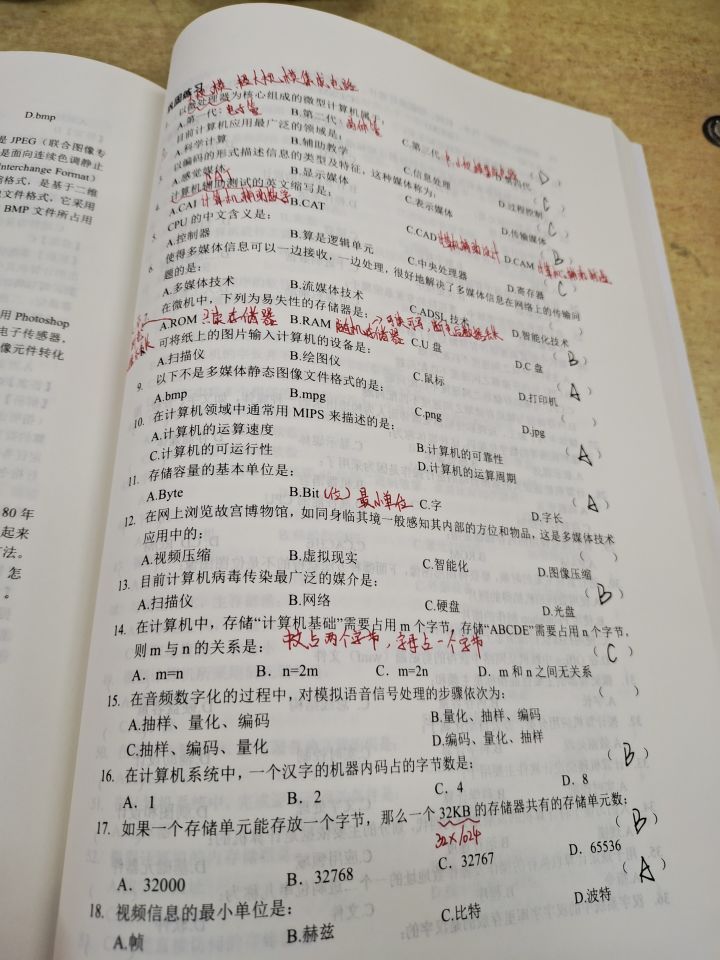 D.bmp
是 JPEG（联合图像专
是面向连续色调静止
Interchange Format）
缩格式，是基于二维
文件格式，它采用
BMP 文件所占用
用 Photoshop
电子传感器，
像元件转化
80 年
起来
方法。
怎
。
巩固练习 超大规模集成电路
以微处理器为核心组成的微型计算机属于：
A.第一代：电子管 B.第二代：晶体管 C.第三代 D.第四代 （ D ）
目前计算机应用最广泛的领域是：
A.科学计算 B.辅助教学 C.信息处理 D.过程控制 （ C ）
3. 以编码的形式描述信息的类型及特征，这种媒体称为：
A.感觉媒体 B.显示媒体 C.表示媒体 D.传输媒体 （ C ）
4. 计算机辅助测试的英文缩写是：
A.CAI 计算机辅助教学 B.CAT C.CAD 计算机辅助设计 D.CAM 计算机辅助制造 （ B ）
5 CPU 的中文含义是：
A.控制器 B.算是逻辑单元 C.中央处理器 D.寄存器 （ C ）
6 使得多媒体信息可以一边接收，一边处理，很好地解决了多媒体信息在网络上的传输问
题的是：
A.多媒体技术 B.流媒体技术 C.ADSL 技术 D.智能化技术
在微机中，下列为易失性的存储器是：
A.ROM 只读存储器 B.RAM 随机存储器 C.U 盘 D.C 盘 （ B ）
可将纸上的图片输入计算机的设备是：
A.扫描仪 B.绘图仪 C.鼠标 D.打印机 （ A ）
9. 以下不是多媒体静态图像文件格式的是：
A.bmp B.mpg C.png D.jpg （ ）
10. 在计算机领域中通常用 MIPS 来描述的是：
A.计算机的运算速度 B.计算机的可靠性 （ A ）
C.计算机的可运行性 D.计算机的运算周期
11. 存储容量的基本单位是：
A.Byte B.Bit（位）最小单位 C.字 D.字长 （ A ）
12. 在网上浏览故宫博物馆，如同身临其境一般感知其内部的方位和物品，这是多媒体技术
应用中的： （ ）
A.视频压缩 B.虚拟现实 C.智能化 D.图像压缩
13. 目前计算机病毒传染最广泛的媒介是： （ B ）
A.扫描仪 B.网络 C.硬盘 D.光盘
14. 在计算机中，存储“计算机基础”需要占用 m 个字节，存储“ABCDE”需要占用 n 个字节，
则 m 与 n 的关系是： 汉占两个字节，字母占一个字节 （ C ）
A．m=n B．n=2m C．m=2n D．m 和 n 之间无关系
15. 在音频数字化的过程中，对模拟语音信号处理的步骤依次为： （ ）
A.抽样、量化、编码 B.量化、抽样、编码
C.抽样、编码、量化 D.编码、量化、抽样
16. 在计算机系统中，一个汉字的机器内码占的字节数是： （ B ）
A．1 B．2 C．4 D．8
17. 如果一个存储单元能存放一个字节，那么一个 32KB 的存储器共有的存储单元数： （ B ）
32×1024
A．32000 B．32768 C．32767 D．65536
18. 视频信息的最小单位是： （ A ）
A.帧 B.赫兹 C.比特 D.波特